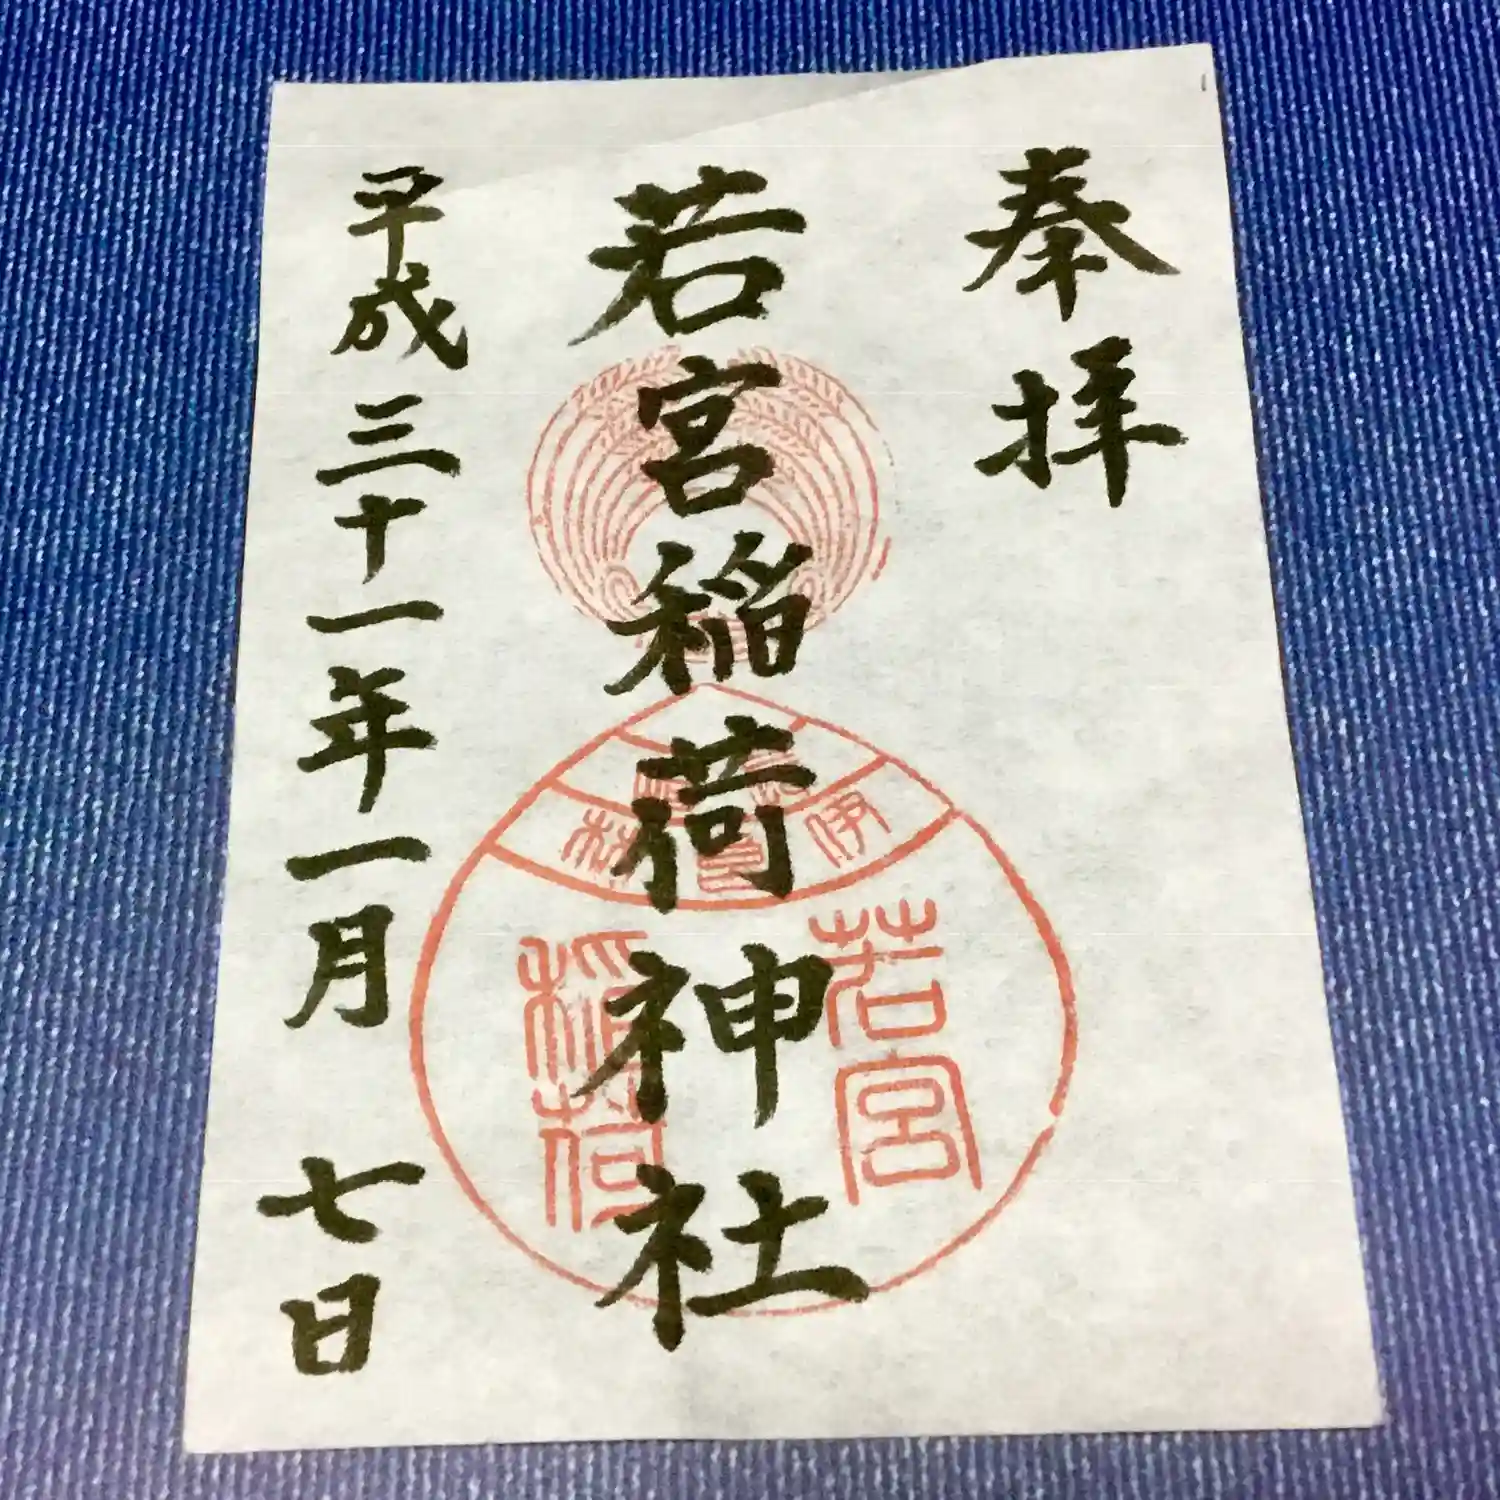 奉拝
若宮稲荷神社
平成三十一年一月七日
若宮
稲荷
伊
林